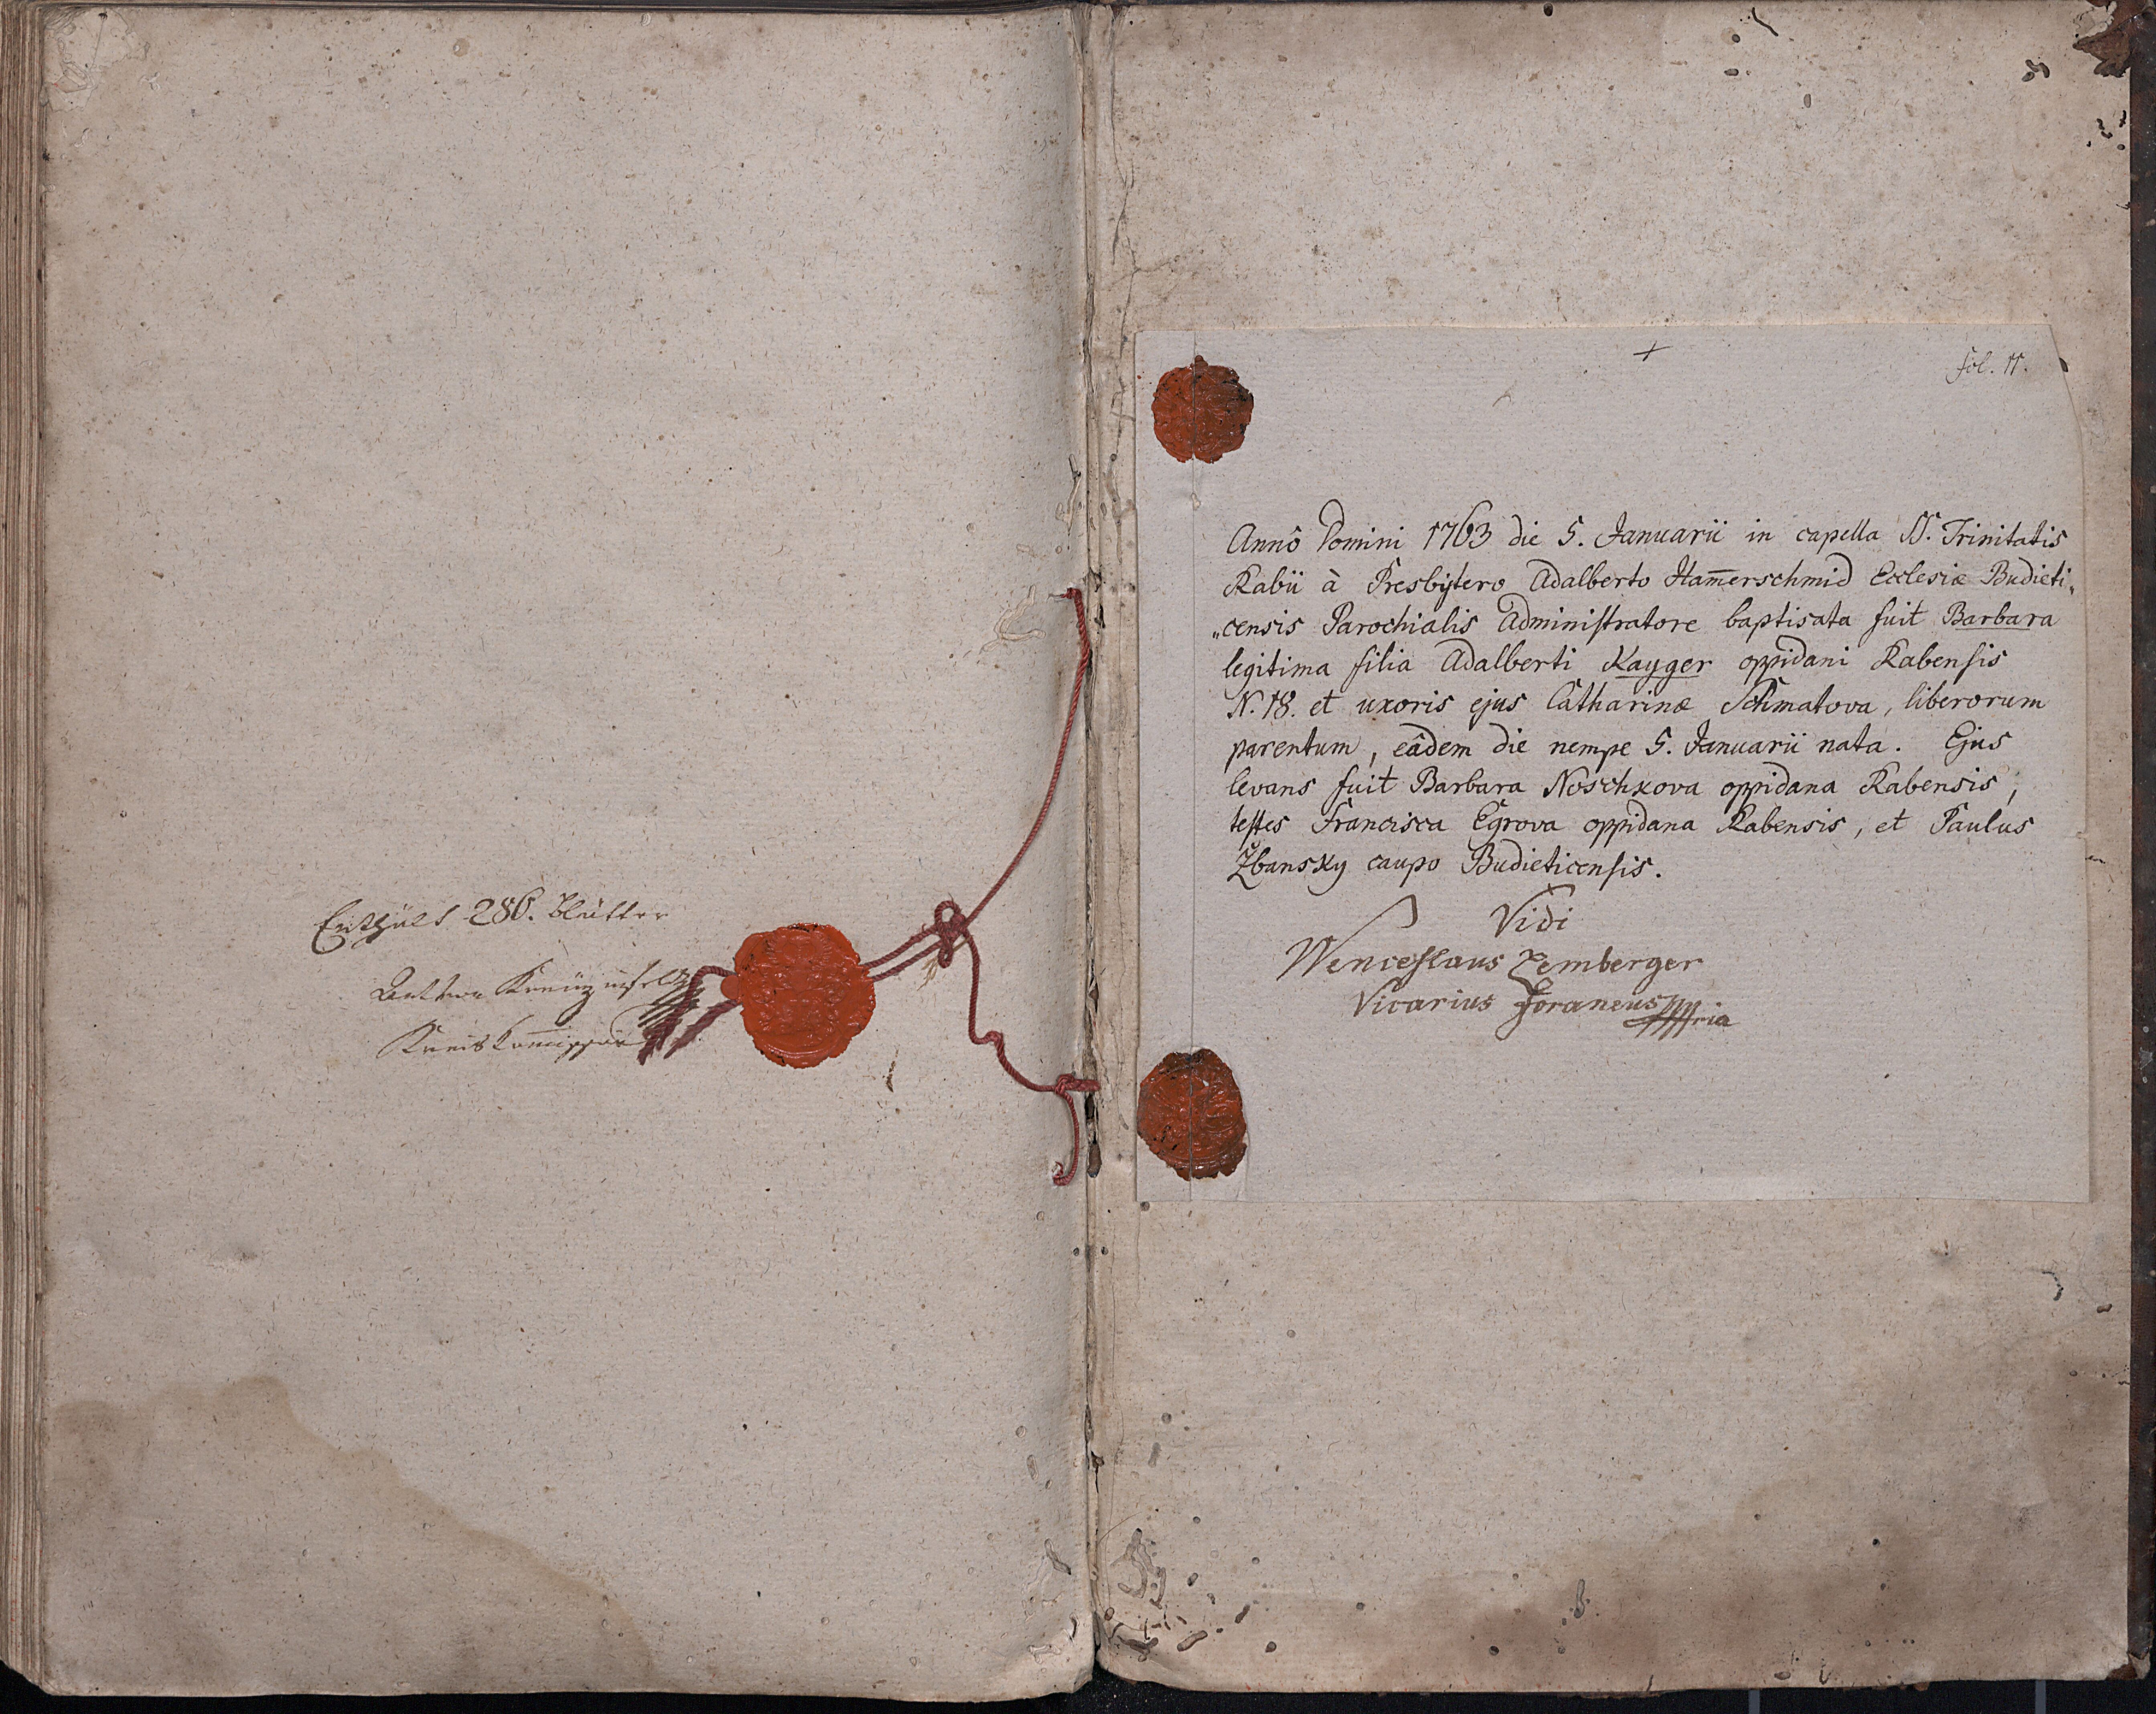 Enthält 286. Blätter
Kreiskom̅issär
+
fol. 11.
Annô Domini 1763 die 5. Januarii in capella SS. Trinitatis
Rabii à Presbytero Adalberto Ham̅erschmid Ecclesiæ Budieti„
„censis Parochialis Administratore baptisata fuit Barbara
legitima filia Adalberti Kayger oppidani Rabensis
N. 18. et uxoris ejus Catharinæ Schmatova, liberorum
parentum, eâdem die nempe 5. Januarii nata. Ejus
levans fuit Barbara Noschkova oppidana Rabensis,
testes Francisca Egrova oppidana Rabensis, et Paulus
Žbansky caupo Budieticensis.
Vidi
Wenceslaus Zemberger
Vicarius foraneus mpria